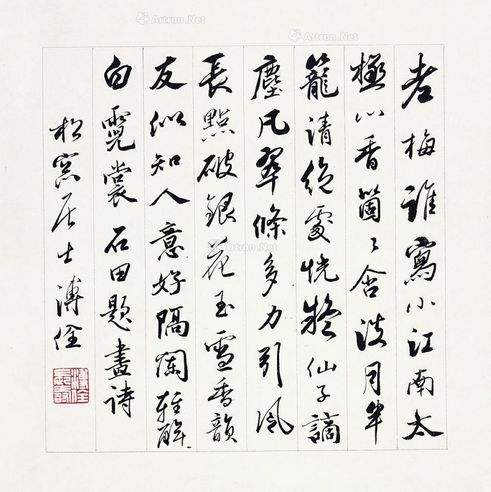 老梅誰寫小江南太
極心香箇々含淡月半
籠清絕處恍疑仙子謫
塵凡翠條多力引風
長點破銀花玉雪香韻
友似知人意好隔闌輕解
白霓裳石田題畫詩
松窓居士溥佺
Artron.Net